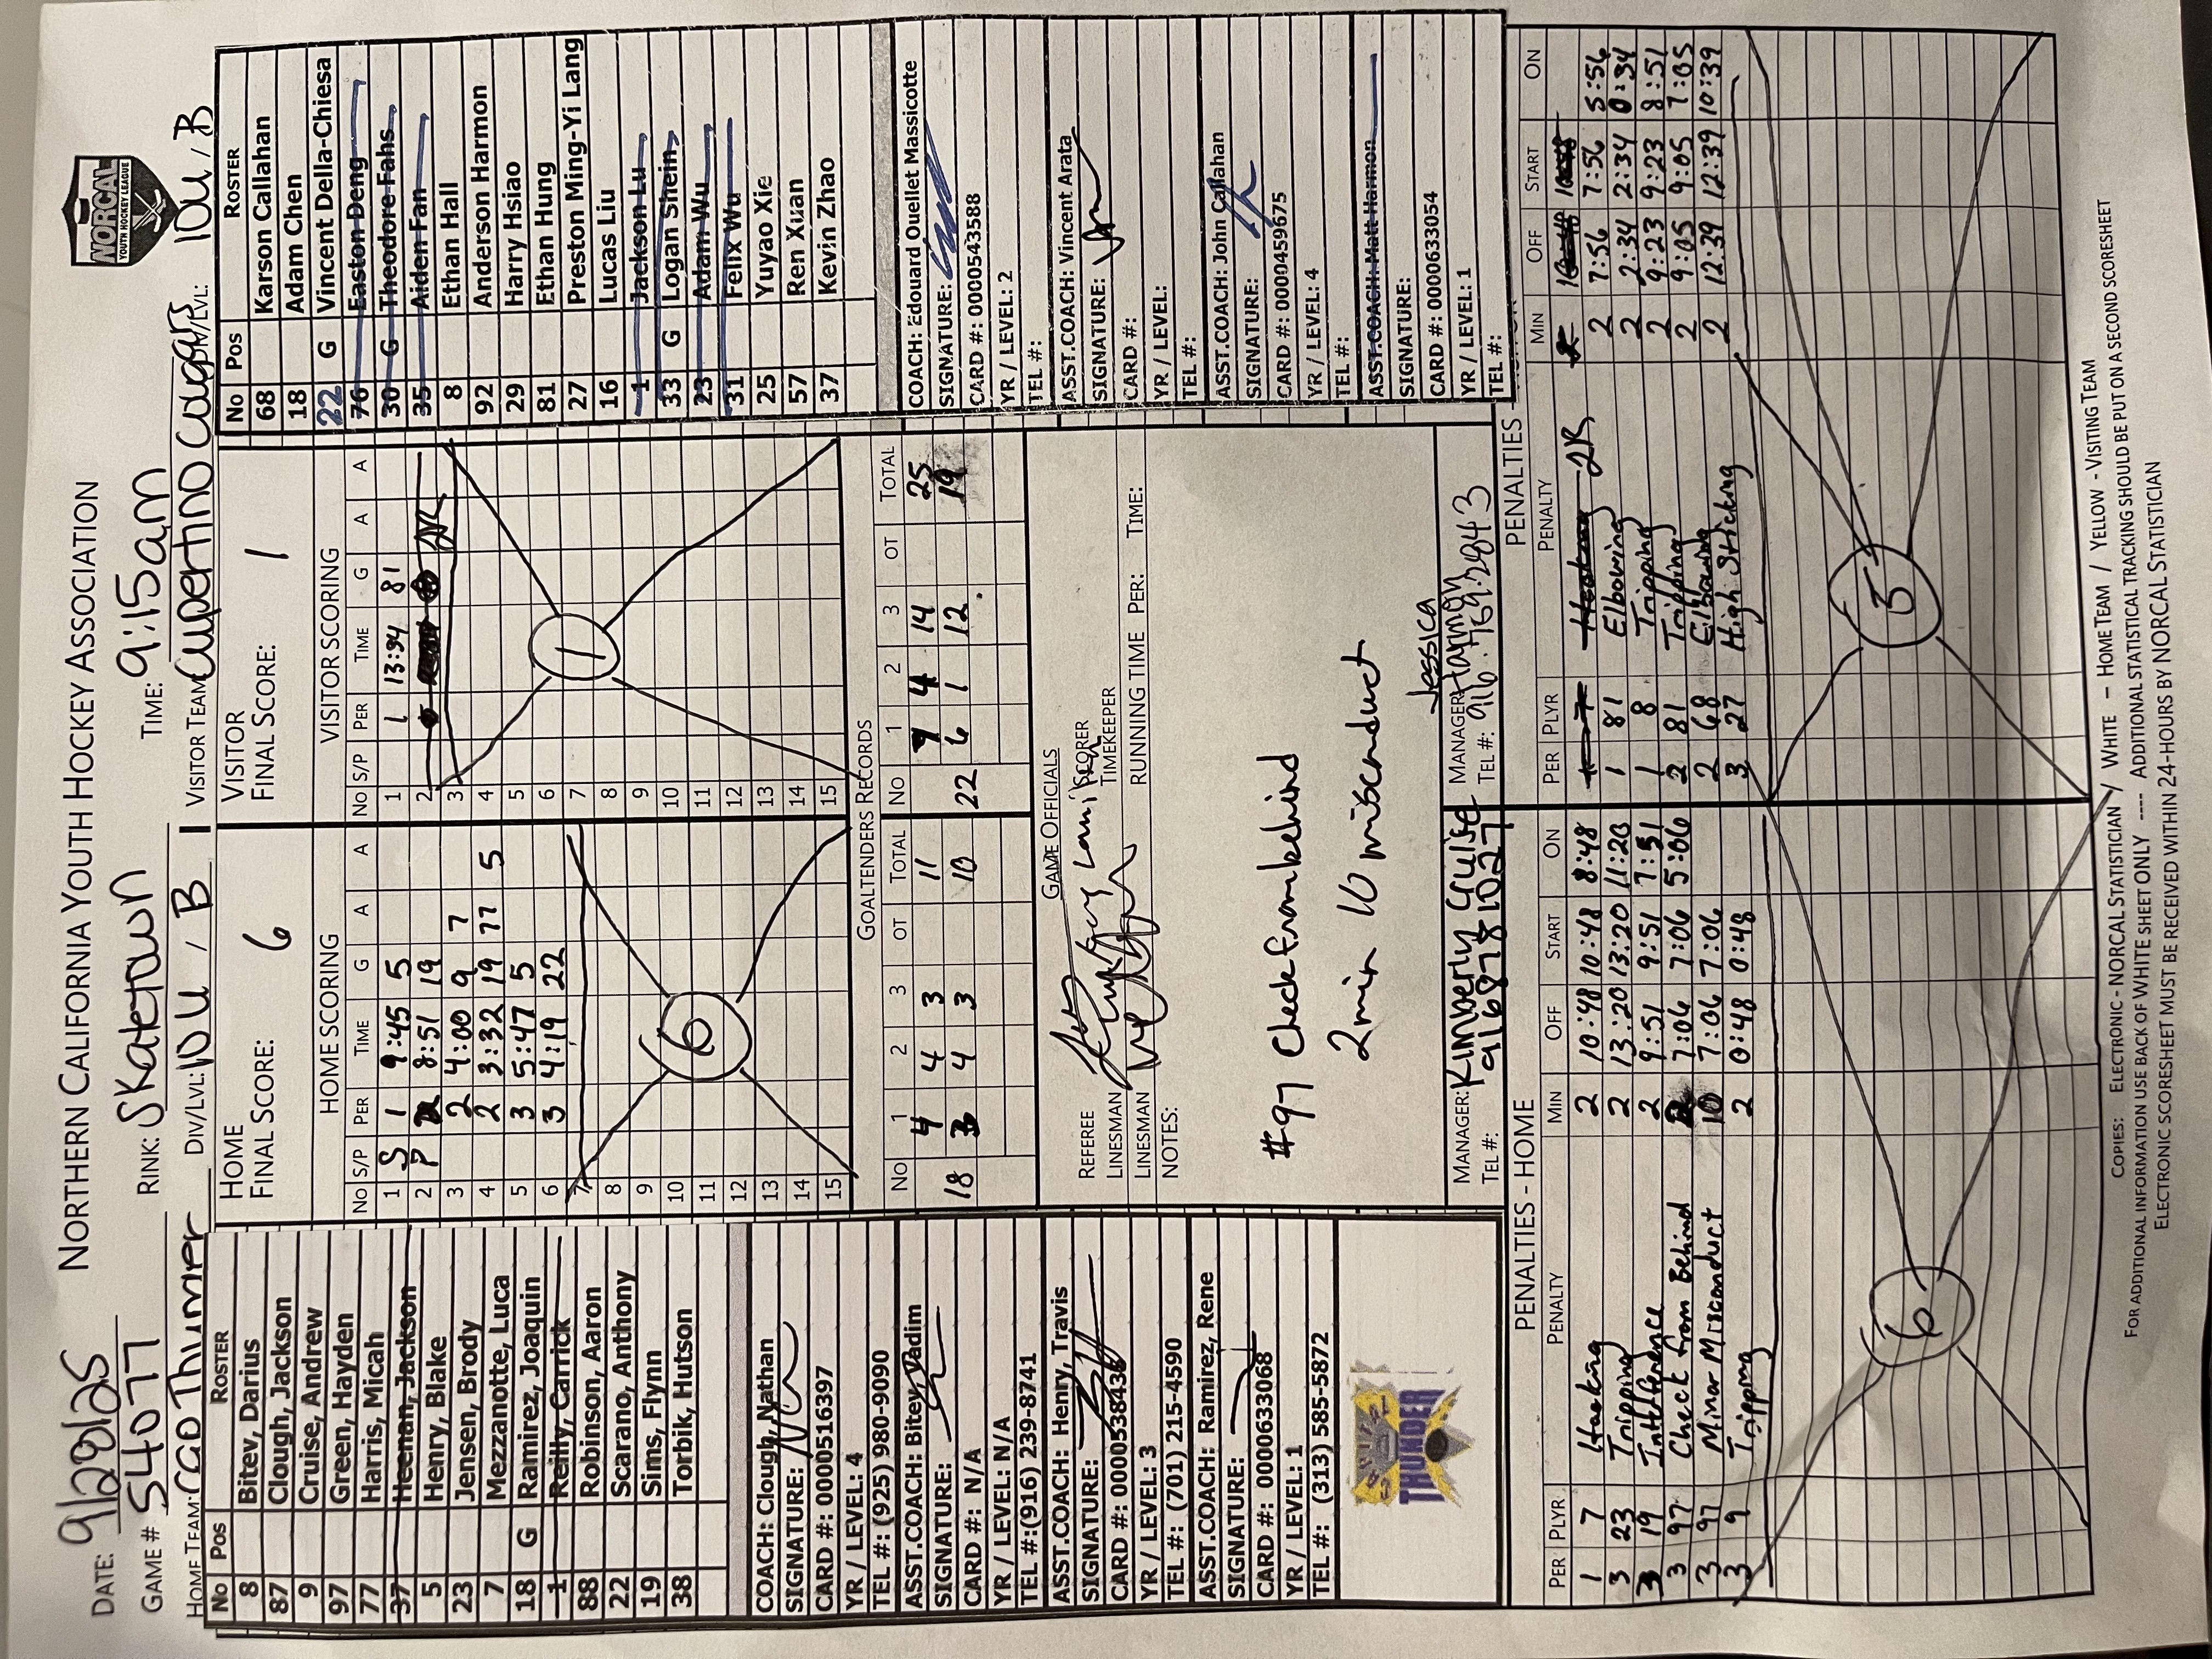 NORTHERN CALIFORNIA YOUTH HOCKEY ASSOCIATION
NORCAL
YOUTH HOCKEY LEAGUE
DATE: 9/28/25
GAME # 54077 RINK: Skatetown TIME: 9:15am
HOME TEAM: CGD Thunder DIV/LVL: 10U / B VISITOR TEAM: Cupertino Cougars DIV/LVL: 10U / B
No Pos ROSTER
8 Bitev, Darius
87 Clough, Jackson
9 Cruise, Andrew
97 Green, Hayden
77 Harris, Micah
37 Heenan, Jackson
5 Henry, Blake
23 Jensen, Brody
7 Mezzanotte, Luca
18 G Ramirez, Joaquin
1 Reilly, Carrick
88 Robinson, Aaron
22 Scarano, Anthony
19 Sims, Flynn
38 Torbik, Hutson
COACH: Clough, Nathan
SIGNATURE:
CARD #: 0000516397
YR / LEVEL: 4
TEL #: (925) 980-9090
ASST.COACH: Bitev, Vadim
SIGNATURE:
CARD #: N/A
YR / LEVEL: N/A
TEL #:(916) 239-8741
ASST.COACH: Henry, Travis
SIGNATURE:
CARD #: 0000538436
YR / LEVEL: 3
TEL #: (701) 215-4590
ASST.COACH: Ramirez, Rene
SIGNATURE:
CARD #: 0000633068
YR / LEVEL: 1
TEL #: (313) 585-5872
THUNDER
HOME
FINAL SCORE: 6
HOME SCORING
No S/P PER TIME G A A
1 S 1 9:45 5
2 P 2 8:51 19
3 2 4:00 9 7
4 2 3:32 19 77 5
5 3 5:47 5
6 3 4:19 22
7
8
9
10
11
12
13
14
15
6
VISITOR
FINAL SCORE: 1
VISITOR SCORING
No S/P PER TIME G A A
1 1 13:34 81
2 JR
3
4
5
6
7
8
9
10
11
12
13
14
15
1
GOALTENDERS RECORDS
No 1 2 3 OT TOTAL No 1 2 3 OT TOTAL
4 4 3 11 7 4 14 25
18 3 4 3 10 22 6 1 12 19
GAME OFFICIALS
REFEREE SCORER
LINESMAN TIMEKEEPER
LINESMAN RUNNING TIME PER: TIME:
NOTES:
#97 Check from behind
2min 10 misconduct
MANAGER: Kimberly Guise MANAGER: Jessica Harmon
TEL #: 9168781027 TEL #: 916.769.2843
No Pos ROSTER
68 Karson Callahan
18 Adam Chen
22 G Vincent Della-Chiesa
76 Easton Deng
30 G Theodore Fahs
35 Aiden Fan
8 Ethan Hall
92 Anderson Harmon
29 Harry Hsiao
81 Ethan Hung
27 Preston Ming-Yi Lang
16 Lucas Liu
1 Jackson Lu
33 G Logan Shein
23 Adam Wu
31 Felix Wu
25 Yuyao Xie
57 Ren Xuan
37 Kevin Zhao
COACH: Edouard Ouellet Massicotte
SIGNATURE:
CARD #: 0000543588
YR / LEVEL: 2
TEL #:
ASST.COACH: Vincent Arata
SIGNATURE:
CARD #:
YR / LEVEL:
TEL #:
ASST.COACH: John Callahan
SIGNATURE:
CARD #: 0000459675
YR / LEVEL: 4
TEL #:
ASST.COACH: Matt Harmon
SIGNATURE:
CARD #: 0000633054
YR / LEVEL: 1
TEL #:
PENALTIES - HOME
PER PLYR PENALTY MIN OFF START ON
1 7 Hooking 2 10:48 10:48 8:48
3 23 Tripping 2 13:20 13:20 11:20
3 19 Interference 2 9:51 9:51 7:51
3 97 Check from Behind 2 7:06 7:06 5:06
3 97 Minor Misconduct 10 7:06 7:06
3 9 Tripping 2 0:48 0:48
6
PENALTIES -
PER PLYR PENALTY MIN OFF START ON
1 7 Hooking JR 2 10:48 10:48
1 81 Elbowing 2 7:56 7:56 5:56
1 8 Tripping 2 2:34 2:34 0:34
2 81 Tripping 2 9:23 9:23 8:51
2 68 Elbowing 2 9:05 9:05 7:05
3 27 High Sticking 2 12:39 12:39 10:39
5
COPIES: ELECTRONIC - NORCAL STATISTICIAN / WHITE - HOME TEAM / YELLOW - VISITING TEAM
FOR ADDITIONAL INFORMATION USE BACK OF WHITE SHEET ONLY ---- ADDITIONAL STATISTICAL TRACKING SHOULD BE PUT ON A SECOND SCORESHEET
ELECTRONIC SCORESHEET MUST BE RECEIVED WITHIN 24-HOURS BY NORCAL STATISTICIAN